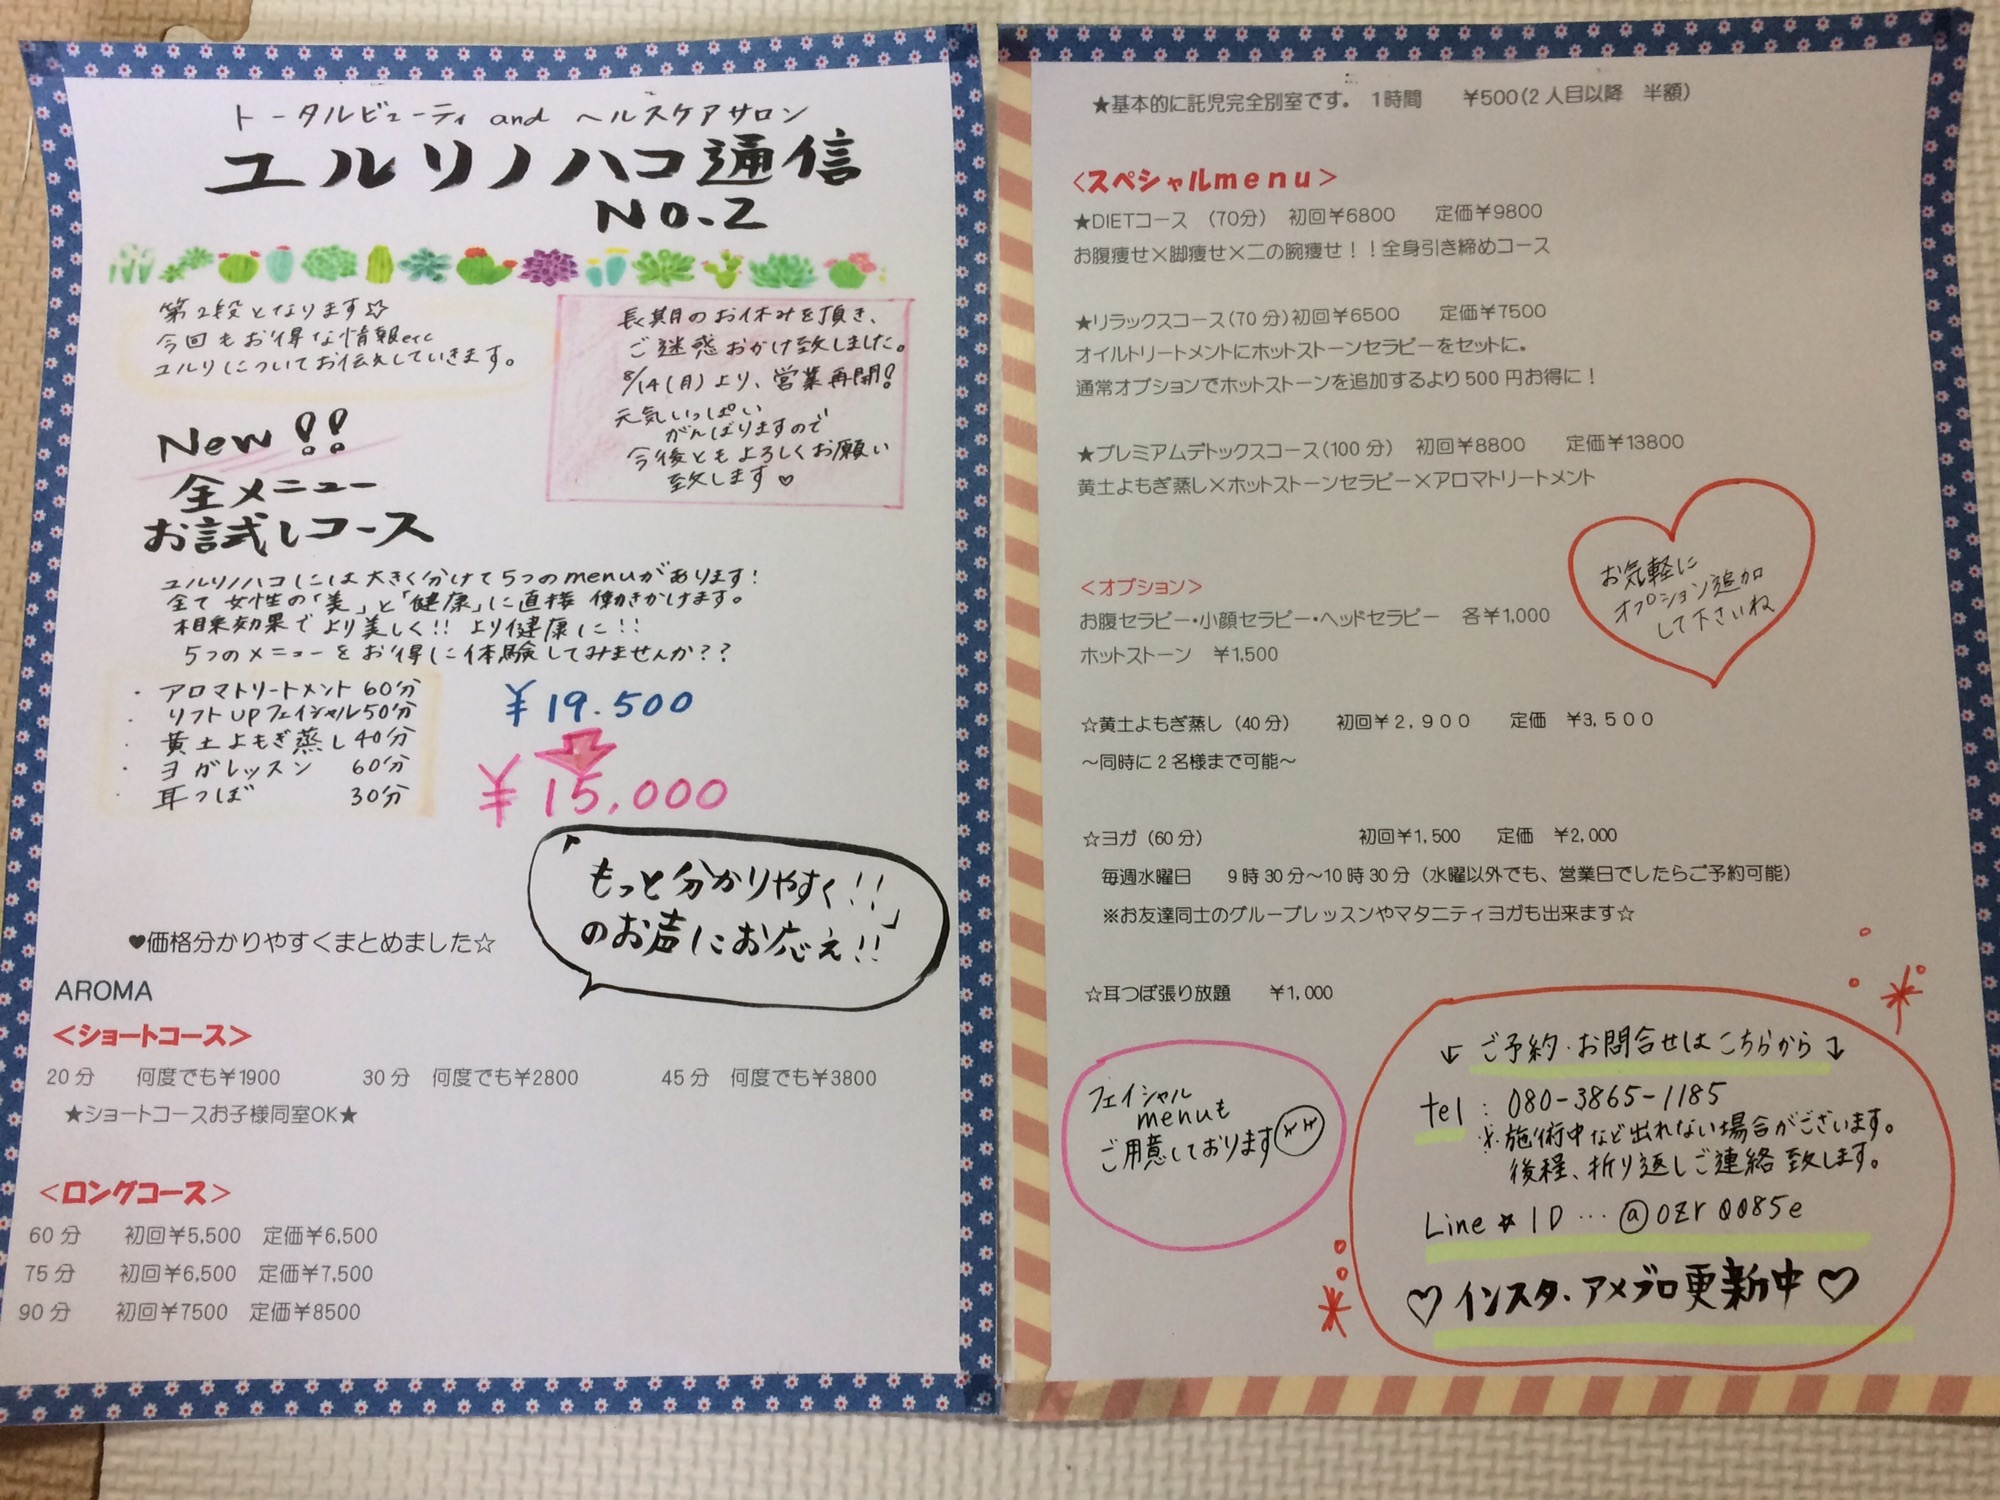 トータルビューティ and ヘルスケアサロン
ユルリノハコ通信
NO.2
第2段となります☆
今回もお得な情報etc
ユルリについてお伝えしていきます。
長期のお休みを頂き、
ご迷惑おかけ致しました。
8/14(月)より、営業再開!
元気いっぱい
がんばりますので
今後ともよろしくお願い
致します♡
New!!
全メニュー
お試しコース
ユルリノハコには大きく分けて5つのmenuがあります!
全て女性の「美」と「健康」に直接働きかけます。
相乗効果でより美しく!! より健康に!!
5つのメニューをお得に体験してみませんか??
・アロマトリートメント 60分
・リフトupフェイシャル50分
・黄土よもぎ蒸し40分
・ヨガレッスン 60分
・耳つぼ 30分
¥19.500
¥15,000
「もっと分かりやすく!!」
のお声にお応え!!
♥価格分かりやすくまとめました☆
AROMA
<ショートコース>
20分 何度でも¥1900 30分 何度でも¥2800 45分 何度でも¥3800
★ショートコースお子様同室OK★
<ロングコース>
60分 初回¥5,500 定価¥6,500
75分 初回¥6,500 定価¥7,500
90分 初回¥7500 定価¥8500
★基本的に託児完全別室です。 1時間 ¥500(2人目以降 半額)
<スペシャルmenu>
★DIETコース (70分) 初回¥6800 定価¥9800
お腹痩せ×脚痩せ×二の腕痩せ!!全身引き締めコース
★リラックスコース(70分)初回¥6500 定価¥7500
オイルトリートメントにホットストーンセラピーをセットに。
通常オプションでホットストーンを追加するより500円お得に!
★プレミアムデトックスコース(100分) 初回¥8800 定価¥13800
黄土よもぎ蒸し×ホットストーンセラピー×アロマトリートメント
<オプション>
お腹セラピー・小顔セラピー・ヘッドセラピー 各¥1,000
ホットストーン ¥1,500
お気軽に
オプション追加
して下さいね
☆黄土よもぎ蒸し(40分) 初回¥2,900 定価 ¥3,500
～同時に2名様まで可能～
☆ヨガ(60分) 初回¥1,500 定価 ¥2,000
毎週水曜日 9時30分～10時30分(水曜以外でも、営業日でしたらご予約可能)
※お友達同士のグループレッスンやマタニティヨガも出来ます☆
☆耳つぼ張り放題 ¥1,000
フェイシャル
menuも
ご用意しております
↓ ご予約・お問合せはこちらから ↓
tel : 080-3865-1185
※施術中など出れない場合がございます。
後程、折り返しご連絡致します。
Line☆ID…@ozr0085e
♡インスタ・アメブロ更新中♡